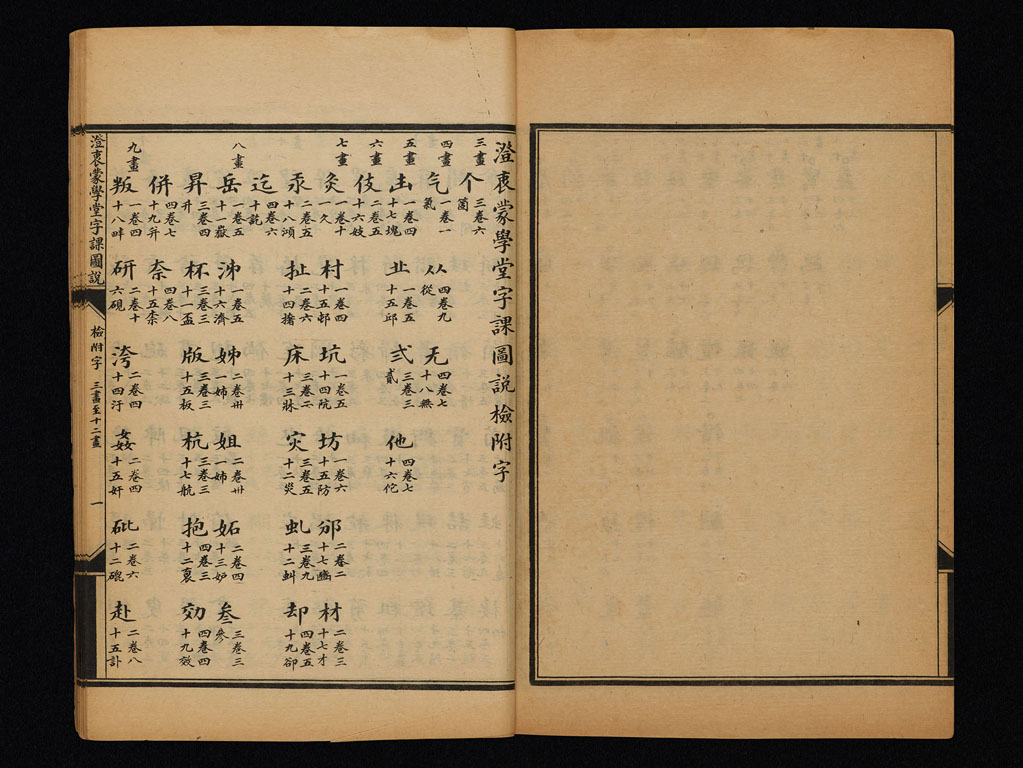 澄衷蒙學堂字課圖說檢附字
三畫
个 三卷六 箇
四畫
气 一卷一 氣 从 四卷九 從 无 四卷七 十八無
五畫
凷 一卷四 十七塊 丠 一卷五 十五邱 弍 三卷三 貳 他 四卷七 十六佗
六畫
伎 二卷五 十六妓
七畫
灸 一卷十 一久 村 一卷四 十五邨 坑 一卷五 十四阬 坊 一卷六 十五防 邠 二卷二 十七豳 材 二卷三 十七才
汞 二卷五 十八澒 扯 二卷六 十四撦 床 三卷二 十三牀 灾 三卷五 十二災 虬 三卷九 十二虯 却 四卷五 十九卻
迄 四卷六 十訖
八畫
岳 一卷五 十一嶽 泲 一卷五 十六濟 姊 二卷卅 一姉 姐 二卷卅 一姉 妬 二卷四 十三妒 叁 三卷三 參
昇 三卷四 升 杯 三卷三 十一盃 版 三卷三 十五板 杭 三卷三 十七航 抱 四卷三 十二裒 効 四卷四 十九效
併 四卷七 十九幷 奈 四卷八 十五柰
九畫
叛 一卷四 十八畔 研 二卷十 六硯 洿 二卷四 十四汙 姦 二卷四 十五奸 砒 二卷六 十二磇 赴 二卷八 十五訃
澄衷蒙學堂字課圖說
檢附字 三畫至十二畫
一